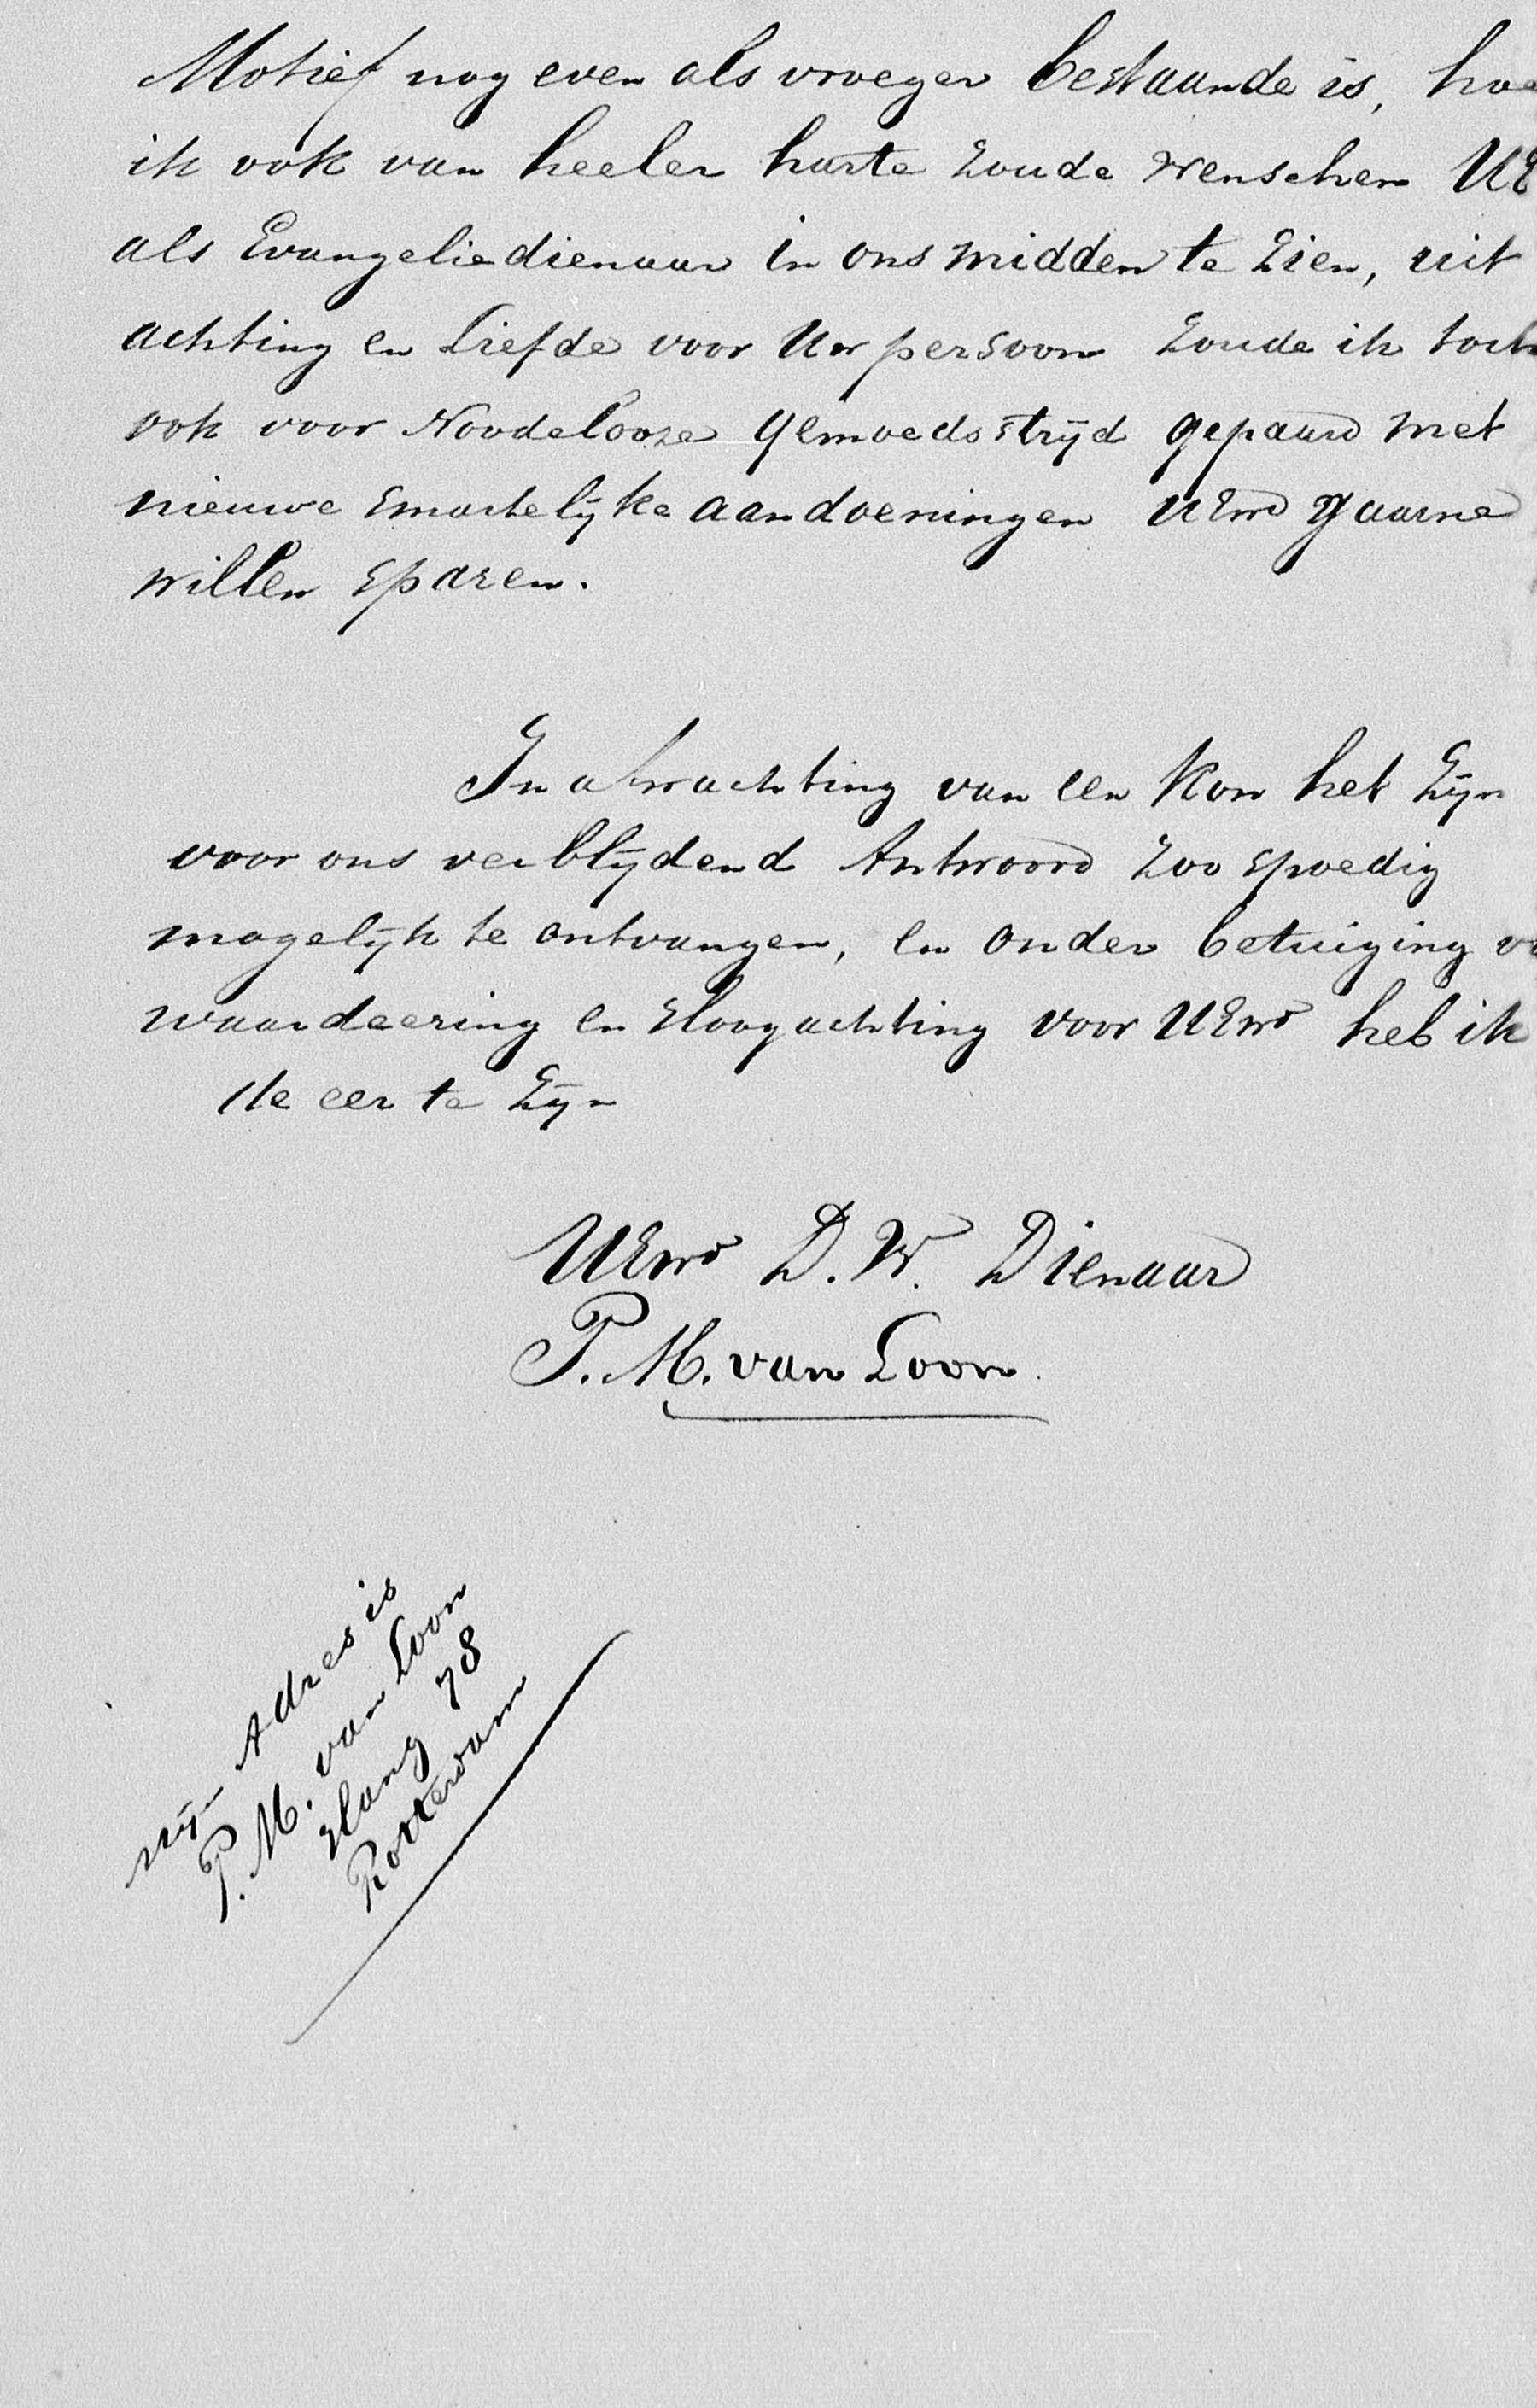 Motief nog even als vroeger bestaande is, hoe
ik ook van heeler harte zoude wenschen UE
als Evangeliedienaar in ons midden te zien, uit
achting en Liefde voor Uw persoon zoude ik toch
ook voor Noodelooze gemoedsstrijd gepaard met
nieuwe smartelijke aandoeningen UEwd gaarne
willen sparen.
In afwachting van een kon het zijn
voor ons verblijdend Antwoord zoo spoedig
mogelijk te ontvangen, en onder betuiging
waardeering en Hoogachting voor UEwd heb ik
de eer te zijn
UEwd D. W. Dienaar
P. M. van Loon.
mijn Adres is
P. M. van Loon
Hang 78
Rotterdam